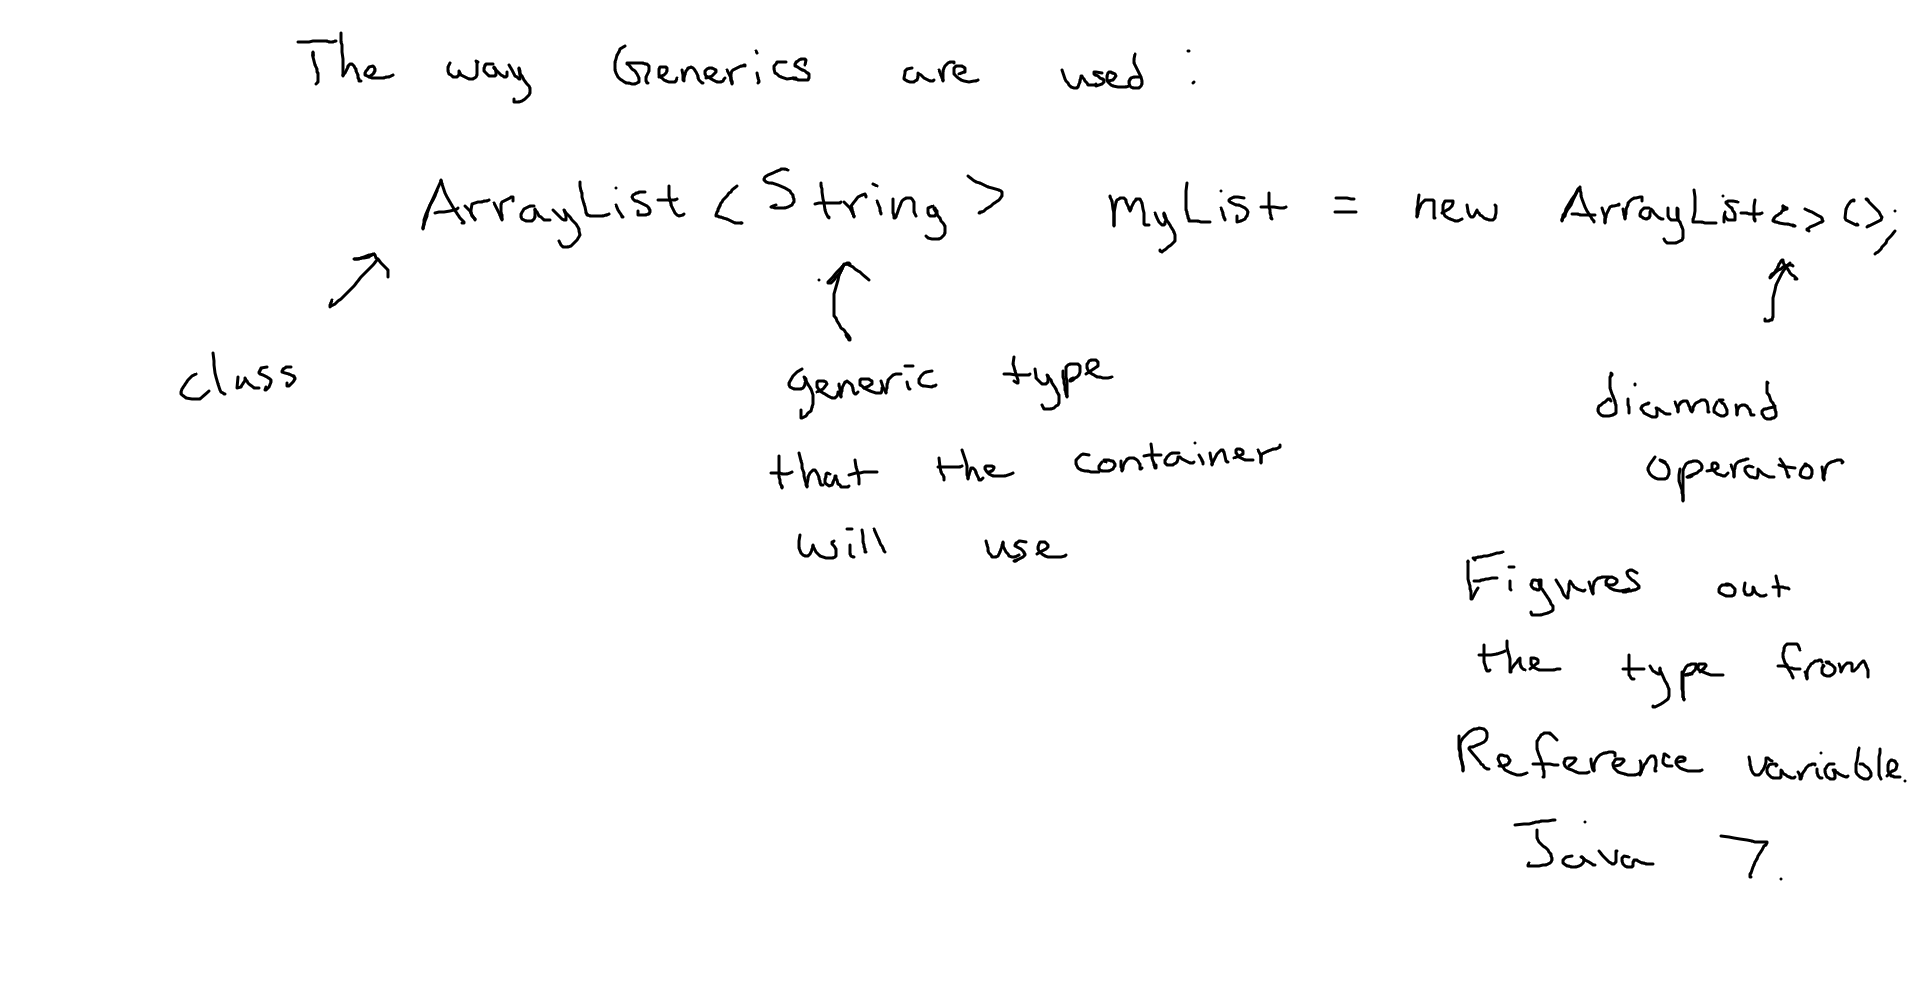 The way Generics are used :
ArrayList <String> myList = new ArrayList<>();
class
generic type
that the container
will use
diamond
operator
Figures out
the type from
Reference variable.
Java 7.